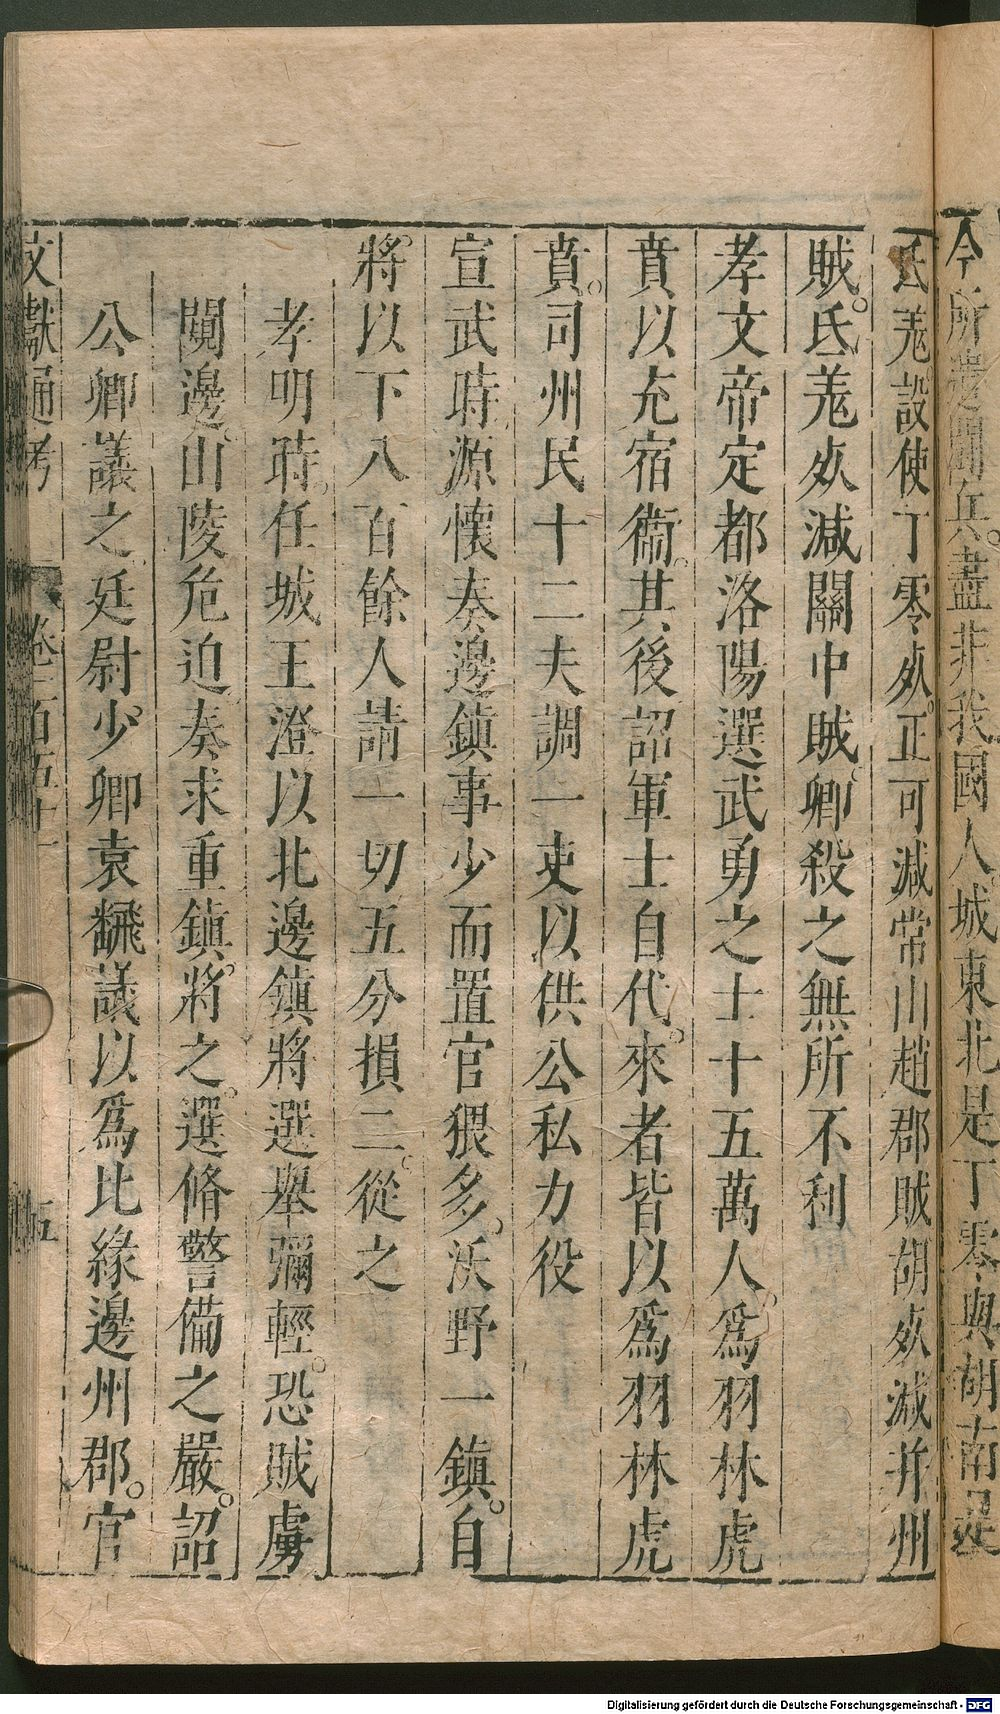 今所遣鬬兵盡非我國人城東北是丁零與胡南是
氐羗設使丁零死正可減常山趙郡賊胡死減并州
賊氐羗死減關中賊卿殺之無所不利
孝文帝定都洛陽選武勇之士十五萬人爲羽林虎
賁以充宿衞其後詔軍士自代來者皆以爲羽林虎
賁司州民十二夫調一吏以供公私力役
宣武時源懷奏邊鎮事少而置官猥多沃野一鎮自
將以下八百餘人請一切五分損二從之
孝明時任城王澄以北邊鎮將選舉彌輕恐賊虜
闚邊山陵危迫奏求重鎮將之選脩警備之嚴詔
公卿議之廷尉少卿袁翻議以爲比緣邊州郡官
文獻通考 卷一百五十一 五
Digitalisierung gefördert durch die Deutsche Forschungsgemeinschaft - DFG